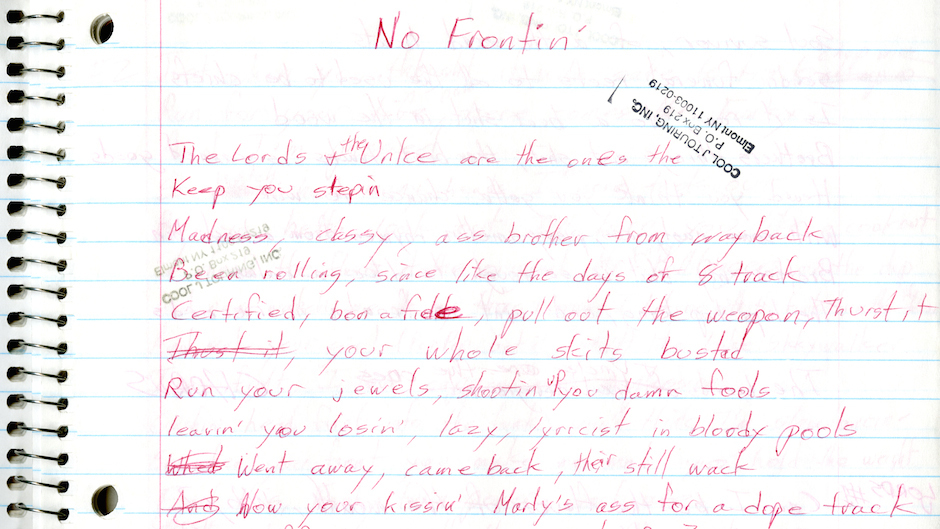 No Frontin'
COOL J TOURING, INC.
P.O. Box 219
Elmont NY 11003-0219
The Lords & the Unkce are the ones the
Keep you stepin
Madness, classy, ass brother from way back
Been rolling, since like the days of 8 track
Certified, bonafide, pull out the weopon, Thurst it
Thust it, your whole skits bustad
Run your jewels, shootin' up you damn fools
leavin' you losin', lazy, lyricist in bloody pools
Went away, came back, their still wack
And Now your kissin' Marly's ass for a dope track